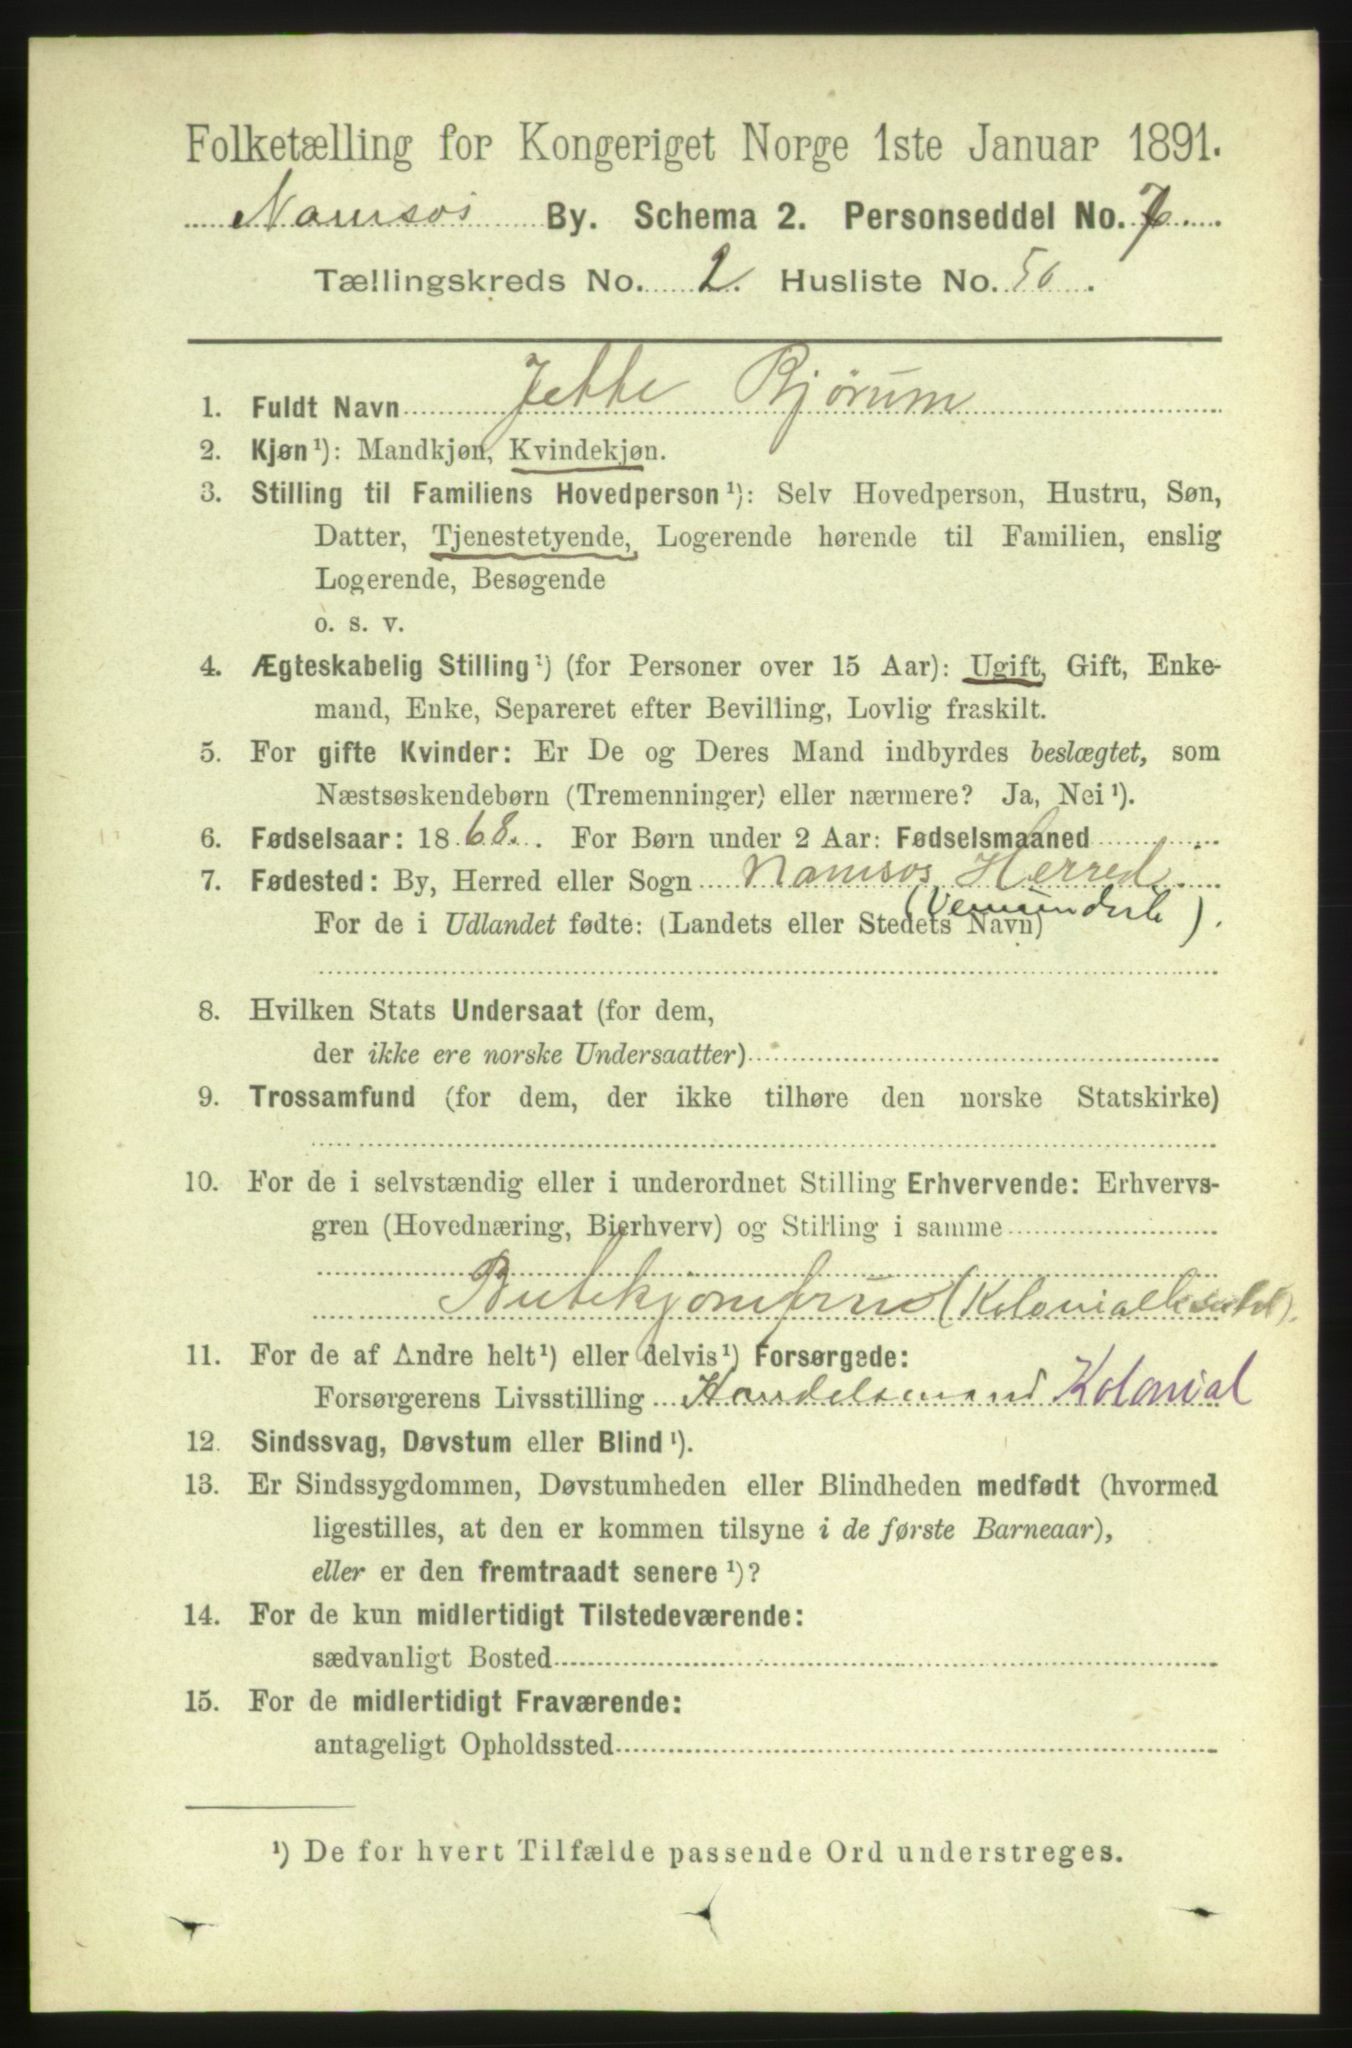 Folketælling for Kongeriget Norge 1ste Januar 1891.
Namsos By. Schema 2. Personseddel No. 7
Tællingskreds No. 2. Husliste No. 50.
1. Fuldt Navn Jette Bjørum
2. Kjøn¹): Mandkjøn, Kvindekjøn.
3. Stilling til Familiens Hovedperson¹): Selv Hovedperson, Hustru, Søn,
Datter, Tjenestetyende, Logerende hørende til Familien, enslig
Logerende, Besøgende
o. s. v.
4. Ægteskabelig Stilling¹) (for Personer over 15 Aar): Ugift, Gift, Enke-
mand, Enke, Separeret efter Bevilling, Lovlig fraskilt.
5. For gifte Kvinder: Er De og Deres Mand indbyrdes beslægtet, som
Næstsøskendebørn (Tremenninger) eller nærmere? Ja, Nei¹).
6. Fødselsaar: 1868. For Børn under 2 Aar: Fødselsmaaned
7. Fødested: By, Herred eller Sogn Namsos Herred
For de i Udlandet fødte: (Landets eller Stedets Navn)
8. Hvilken Stats Undersaat (for dem,
der ikke ere norske Undersaatter)
9. Trossamfund (for dem, der ikke tilhøre den norske Statskirke)
10. For de i selvstændig eller i underordnet Stilling Erhvervende: Erhvervs-
gren (Hovednæring, Bierhverv) og Stilling i samme
Butikjomfru
11. For de af Andre helt¹) eller delvis¹) Forsørgede:
Forsørgerens Livsstilling Handelsmand Kolonial
12. Sindssvag, Døvstum eller Blind¹).
13. Er Sindssygdommen, Døvstumheden eller Blindheden medfødt (hvormed
ligestilles, at den er kommen tilsyne i de første Barneaar),
eller er den fremtraadt senere¹)?
14. For de kun midlertidigt Tilstedeværende:
sædvanligt Bosted
15. For de midlertidigt Fraværende:
antageligt Opholdssted
¹) De for hvert Tilfælde passende Ord understreges.